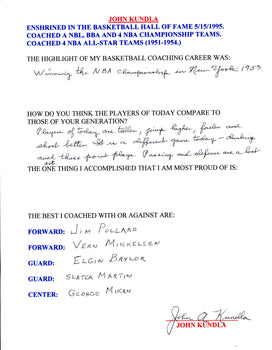 JOHN KUNDLA
ENSHRINED IN THE BASKETBALL HALL OF FAME 5/15/1995.
COACHED A NBL, BBA AND 4 NBA CHAMPIONSHIP TEAMS.
COACHED 4 NBA ALL-STAR TEAMS (1951-1954.)
THE HIGHLIGHT OF MY BASKETBALL COACHING CAREER WAS:
Winning the NBA Championship in New York 1953
HOW DO YOU THINK THE PLAYERS OF TODAY COMPARE TO
THOSE OF YOUR GENERATION?
Players of today are taller, jump higher, faster and
shoot better. It is a different game today - dunking
and three point play. Passing and defense are a lost
art
THE ONE THING I ACCOMPLISHED THAT I AM MOST PROUD OF IS:
THE BEST I COACHED WITH OR AGAINST ARE:
FORWARD: JIM POLLARD
FORWARD: VERN MIKKELSEN
GUARD: ELGIN BAYLOR
GUARD: SLATER MARTIN
CENTER: GEORGE MIKAN
John A. Kundla
JOHN KUNDLA